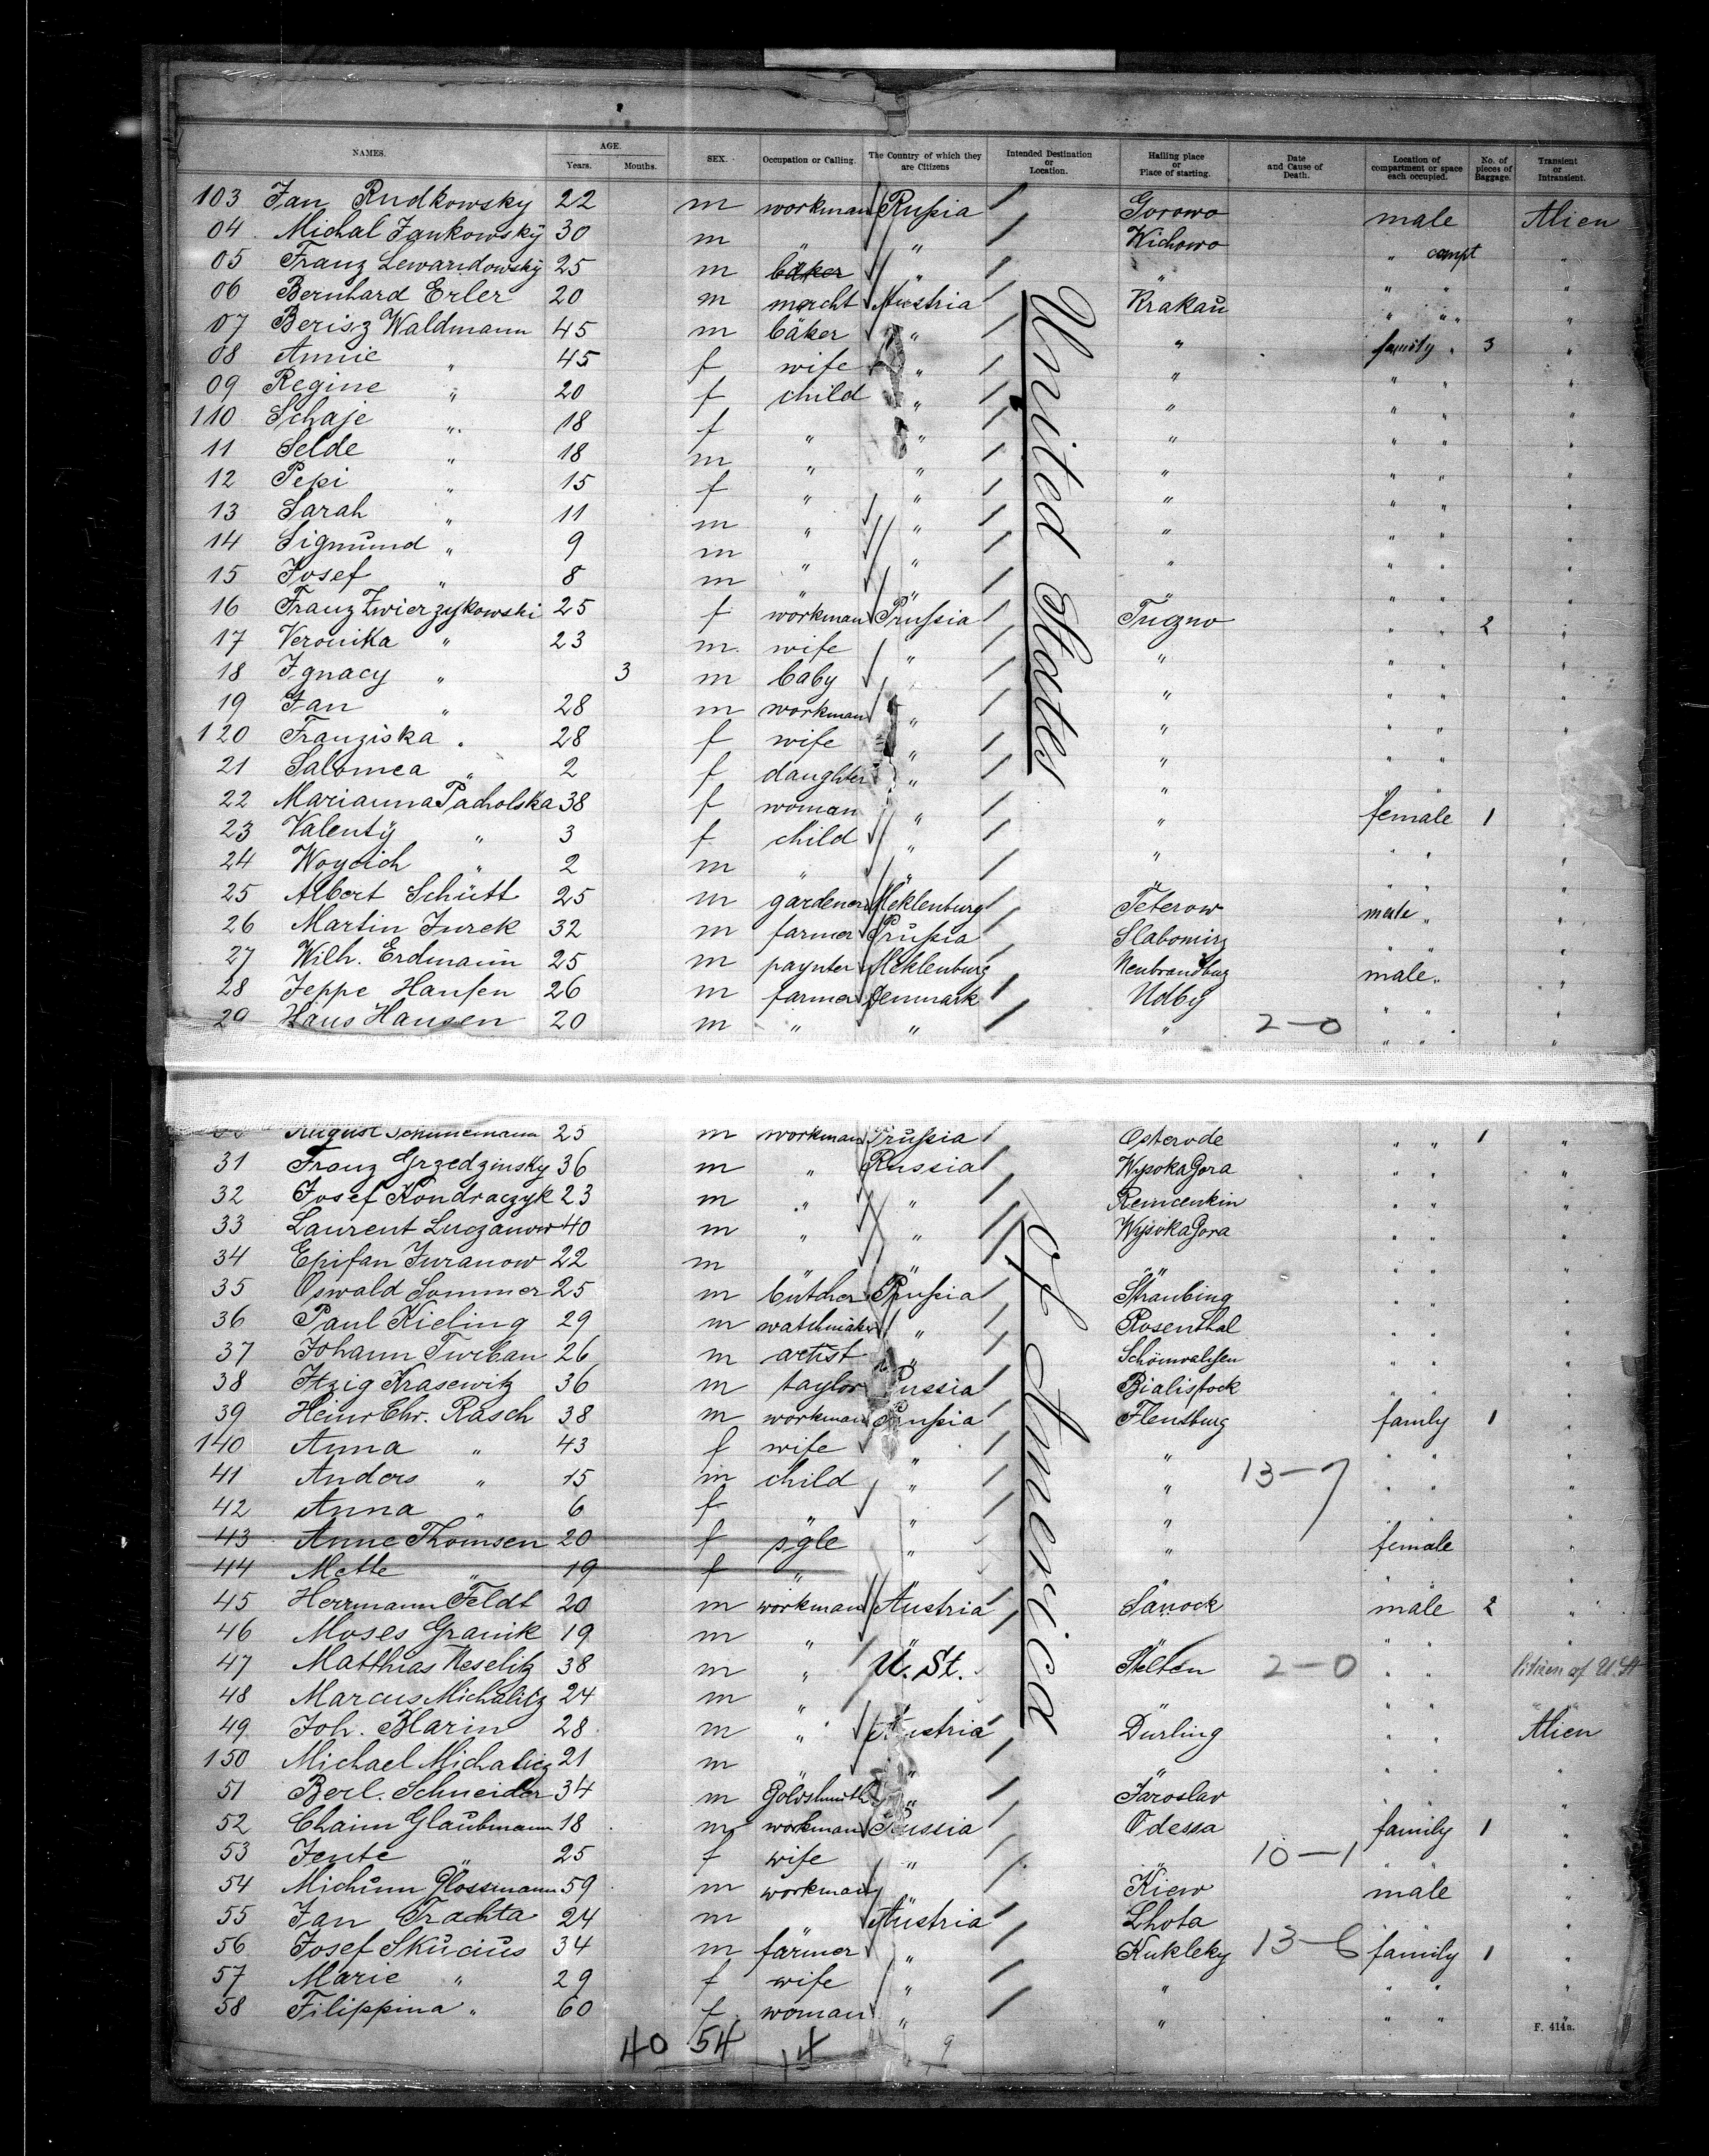 NAMES. AGE. Years. Months. SEX. Occupation or Calling. The Country of which they are Citizens Intended Destination or Location. Hailing place or Place of starting. Date and Cause of Death. Location of compartment or space each occupied. No. of pieces of Baggage. Transient or Intransient.
103 Jan Rudkowsky 22 m workman Rußia Gorowo male Alien
04 Michal Jankowsky 30 m " " Wichowo " compt "
05 Franz Lewandowsky 25 m bäker " " " " "
06 Bernhard Erler 20 m mercht Austria Krakau " " "
07 Berisz Waldmann 45 m bäker " " family " 3 "
08 Annie " 45 f wife " " " " "
09 Regine " 20 f child " " " " "
110 Schaje " 18 f " " " " " "
11 Selde " 18 m " " " " " "
12 Pepi " 15 f " " " " " "
13 Sarah " 11 m " " " " " "
14 Sigmund " 9 m " " " " " "
15 Josef " 8 m " " " " "
16 Franz Zwierzykowski 25 f workman Prußia " " 2 "
17 Veronika " 23 m wife " " " " "
18 Ignacy " 3 m baby " " " " "
19 Jan " 28 m workman " " " " "
120 Franziska " 28 f wife " " " " "
21 Salomea " 2 f daughter " " " " "
22 Marianna Pacholska 38 f woman " " female 1 "
23 Valenty " 3 f child " " " " "
24 Woycich " 2 m " " " " " "
25 Albert Schütt 25 m gardener Meklenburg Teterow male " "
26 Martin Jurek 32 m farmer Prußia " " "
27 Wilh. Erdmann 25 m paynter Meklenburg Neubrandbug male " "
28 Jeppe Hansen 26 m farmer Denmark Udby " " "
29 Hans Hansen 20 m " " " 2-0 " " "
August Schunemann 25 m workman Prußia Osterode " " 1 "
31 Franz Grzedzinsky 36 m " Russia Wysoka Gora " " "
32 Josef Kondraczyk 23 m " " " " "
33 Laurent Luczanow 40 m " " Wysoka Gora " " "
34 Epifan Juranow 22 m " " " " " "
35 Oswald Sommer 25 m butcher Prußia Straubing " " "
36 Paul Kieling 29 m watchmaker " Rosenthal " " "
37 Johann Turban 26 m artist " " " "
38 Itzig Krasewitz 36 m taylor Russia Bialistock " " "
39 Heinr Chr. Rasch 38 m workman Prußia Flensburg family 1 "
140 Anna " 43 f wife " " " " "
41 Anders " 15 m child " " 13-7 " " "
42 Anna " 6 f " " " " " "
43 Anne Thomsen 20 f sgle " " female "
44 Mette " 19 f " " " " "
45 Herrmann Feldt 20 m workman Austria Sanock male 2 "
46 Moses Granik 19 m " " " " " "
47 Matthias Keselitz 38 m " U. St. Stelten 2-0 " " Citizen of U. St
48 Marcus Michalitz 24 m " " " " "
49 Joh. Blarin 28 m " Austria Durling " " Alien
150 Michael Michalicz 21 m " " " " " "
51 Berl. Schneider 34 m Goldsmith " Jaroslav " " "
52 Chaim Glaubmann 18 m workman Russia Odessa family 1 "
53 Jente " 25 f wife " " 10-1 " " "
54 Glossmann 59 m workman Kiew male "
55 Jan Trachta 24 m " Austria Lhota " "
56 Josef Skucius 34 m farmer " Kukleky 13-6 family 1 "
57 Marie " 29 f wife " " " " "
58 Filippina " 60 f woman " " " " "
United States
of America
F. 414a.
40 54 14 9